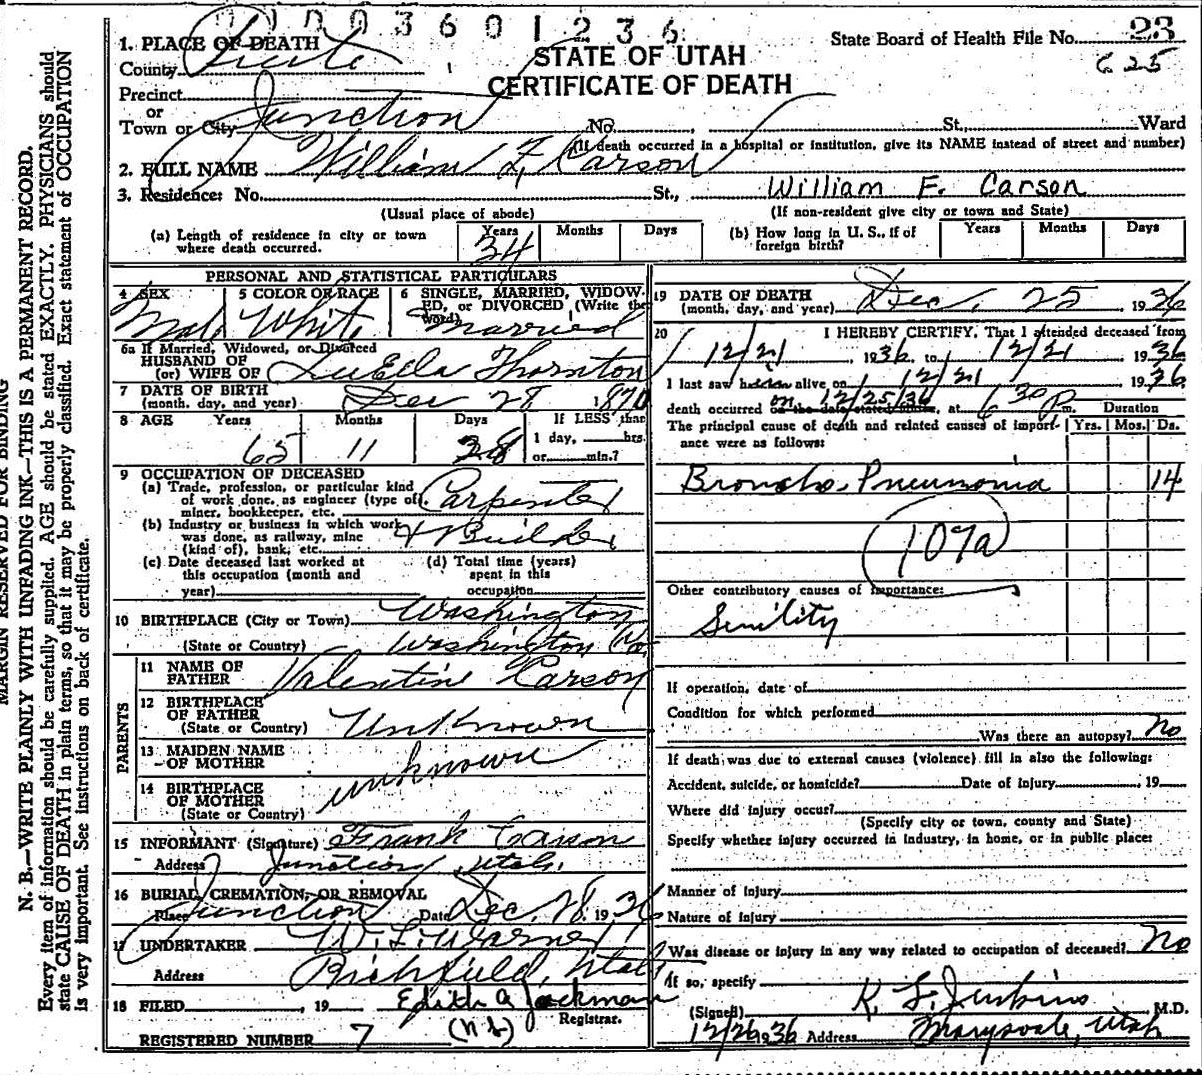 0100 3 6 0 1 2 3 6
STATE OF UTAH
CERTIFICATE OF DEATH
State Board of Health File No. 23
625
1. PLACE OF DEATH
County Piute
Precinct
or
Town or City Junction No. St., Ward
(If death occurred in a hospital or institution, give its NAME instead of street and number)
2. FULL NAME William F. Carson
3. Residence: No. St., William F. Carson
(Usual place of abode) (If non-resident give city or town and State)
(a) Length of residence in city or town where death occurred. Years 34 Months Days
(b) How long in U. S., if of foreign birth? Years Months Days
PERSONAL AND STATISTICAL PARTICULARS
4 SEX Male
5 COLOR OR RACE White
6 SINGLE, MARRIED, WIDOWED, or DIVORCED (Write the word) Married
6a If Married, Widowed, or Divorced
HUSBAND OF
(or) WIFE OF LuElla Thornton
7 DATE OF BIRTH
(month, day, and year) Dec 28 1870
8 AGE Years Months Days If LESS than
65 11 28 1 day, hrs.
or min.?
9 OCCUPATION OF DECEASED
(a) Trade, profession, or particular kind
of work done, as engineer (type of),
miner, bookkeeper, etc. Carpenter
(b) Industry or business in which work
was done, as railway, mine
(kind of), bank, etc. & Builder
(c) Date deceased last worked at
this occupation (month and
year)
(d) Total time (years)
spent in this
occupation
10 BIRTHPLACE (City or Town) Washington
(State or Country) Washington Co.
PARENTS
11 NAME OF
FATHER Valentine Carson
12 BIRTHPLACE
OF FATHER
(State or Country) Unknown
13 MAIDEN NAME
OF MOTHER unknown
14 BIRTHPLACE
OF MOTHER
(State or Country)
15 INFORMANT (Signature) Frank Carson
Address Junction, Utah.
16 BURIAL, CREMATION, OR REMOVAL
Place Junction Date Dec. 28, 1936
17 UNDERTAKER W. L. Warner
Address Richfield, Utah
18 FILED , 19 Edith A Jackman
Registrar.
REGISTERED NUMBER 7 (N.L.)
19 DATE OF DEATH
(month, day, and year) Dec, 25 1936
20 I HEREBY CERTIFY, That I attended deceased from
12/21, 1936 to 12/21 1936
I last saw h alive on 12/21 1936
death occurred on the date stated above, at 6 30 P m. Duration
on 12/25/36
The principal cause of death and related causes of importance were as follows: Yrs. Mos. Ds.
Broncho-Pneumonia 14
107a
Other contributory causes of importance:
Senility
If operation, date of
Condition for which performed
Was there an autopsy? No
If death was due to external causes (violence) fill in also the following:
Accident, suicide, or homicide? Date of injury , 19
Where did injury occur?
(Specify city or town, county and State)
Specify whether injury occurred in industry, in home, or in public place:
Manner of injury
Nature of injury
Was disease or injury in any way related to occupation of deceased? No
If so, specify
(Signed) K. L. Jenkins M.D.
12/26 1936 Address Marysvale, Utah
MARGIN RESERVED FOR BINDING
N. B.—WRITE PLAINLY WITH UNFADING INK—THIS IS A PERMANENT RECORD.
Every item of information should be carefully supplied. AGE should be stated EXACTLY. PHYSICIANS should
state CAUSE OF DEATH in plain terms, so that it may be properly classified. Exact statement of OCCUPATION
is very important. See instructions on back of certificate.